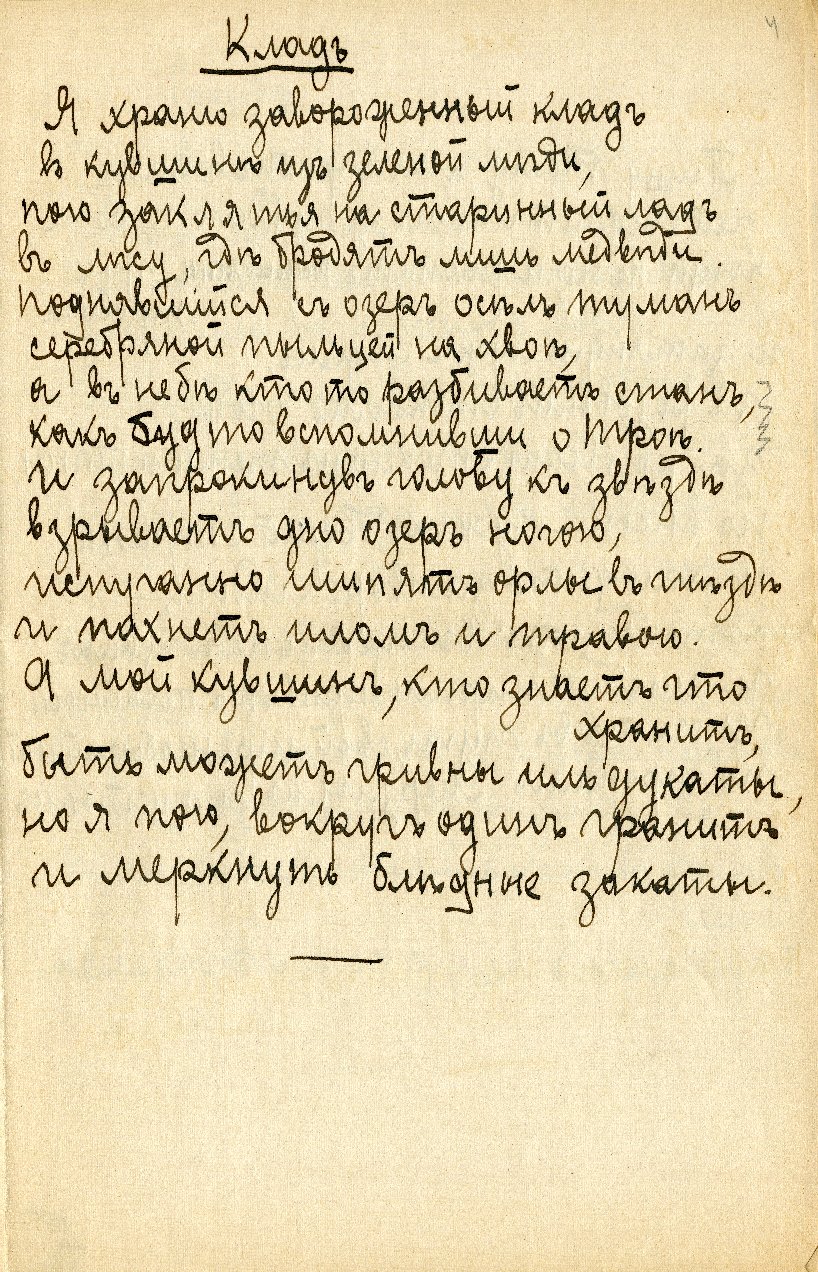 4
Кладъ
Я храню завороженный кладъ
въ кувшинѣ изъ зеленой мѣди,
пою заклятья на старинный ладъ
въ лѣсу, гдѣ бродятъ лишь медвѣди.
Поднявшійся съ озеръ осѣлъ туманъ
серебряной пыльцей на хвоѣ,
а въ небѣ кто то разбиваетъ станъ,
какъ будто вспомнивши о Троѣ.
И запрокинувъ голову къ звѣздѣ
взрываетъ дно озеръ ногою,
испуганно шипятъ орлы въ гнѣздѣ
и пахнетъ иломъ и травою.
А мой кувшинъ, кто знаетъ что
хранитъ,
быть можетъ гривны иль дукаты,
но я пою, вокругъ одинъ гранитъ
и меркнутъ блѣдные закаты.